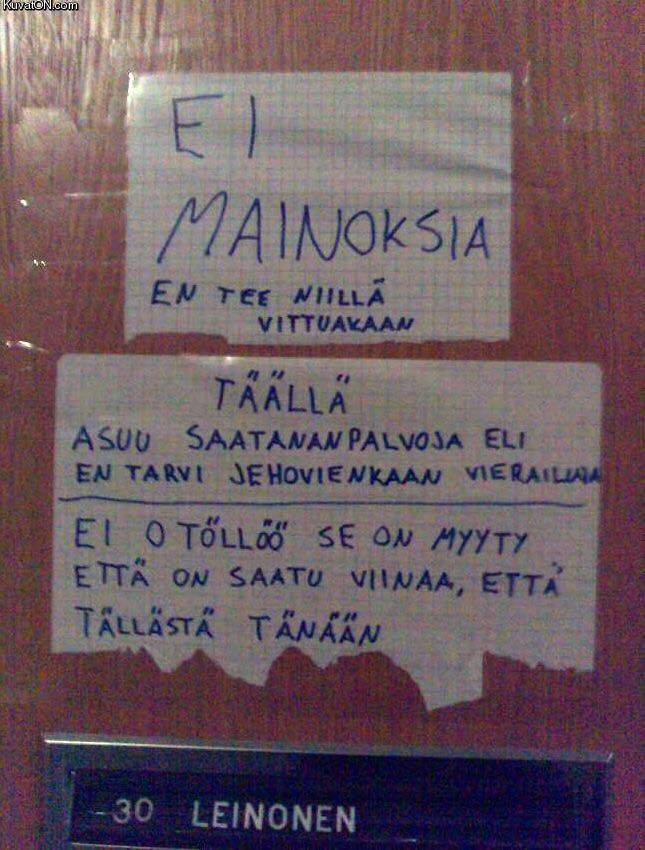 KuvatON.com
EI
MAINOKSIA
EN TEE NIILLÄ
VITTUAKAAN
TÄÄLLÄ
ASUU SAATANANPALVOJA ELI
EN TARVI JEHOVIENKAAN VIERAILUJA
EI O TÖLLÖÖ SE ON MYYTY
ETTÄ ON SAATU VIINAA, ETTÄ
TÄLLÄSTÄ TÄNÄÄN
30 LEINONEN